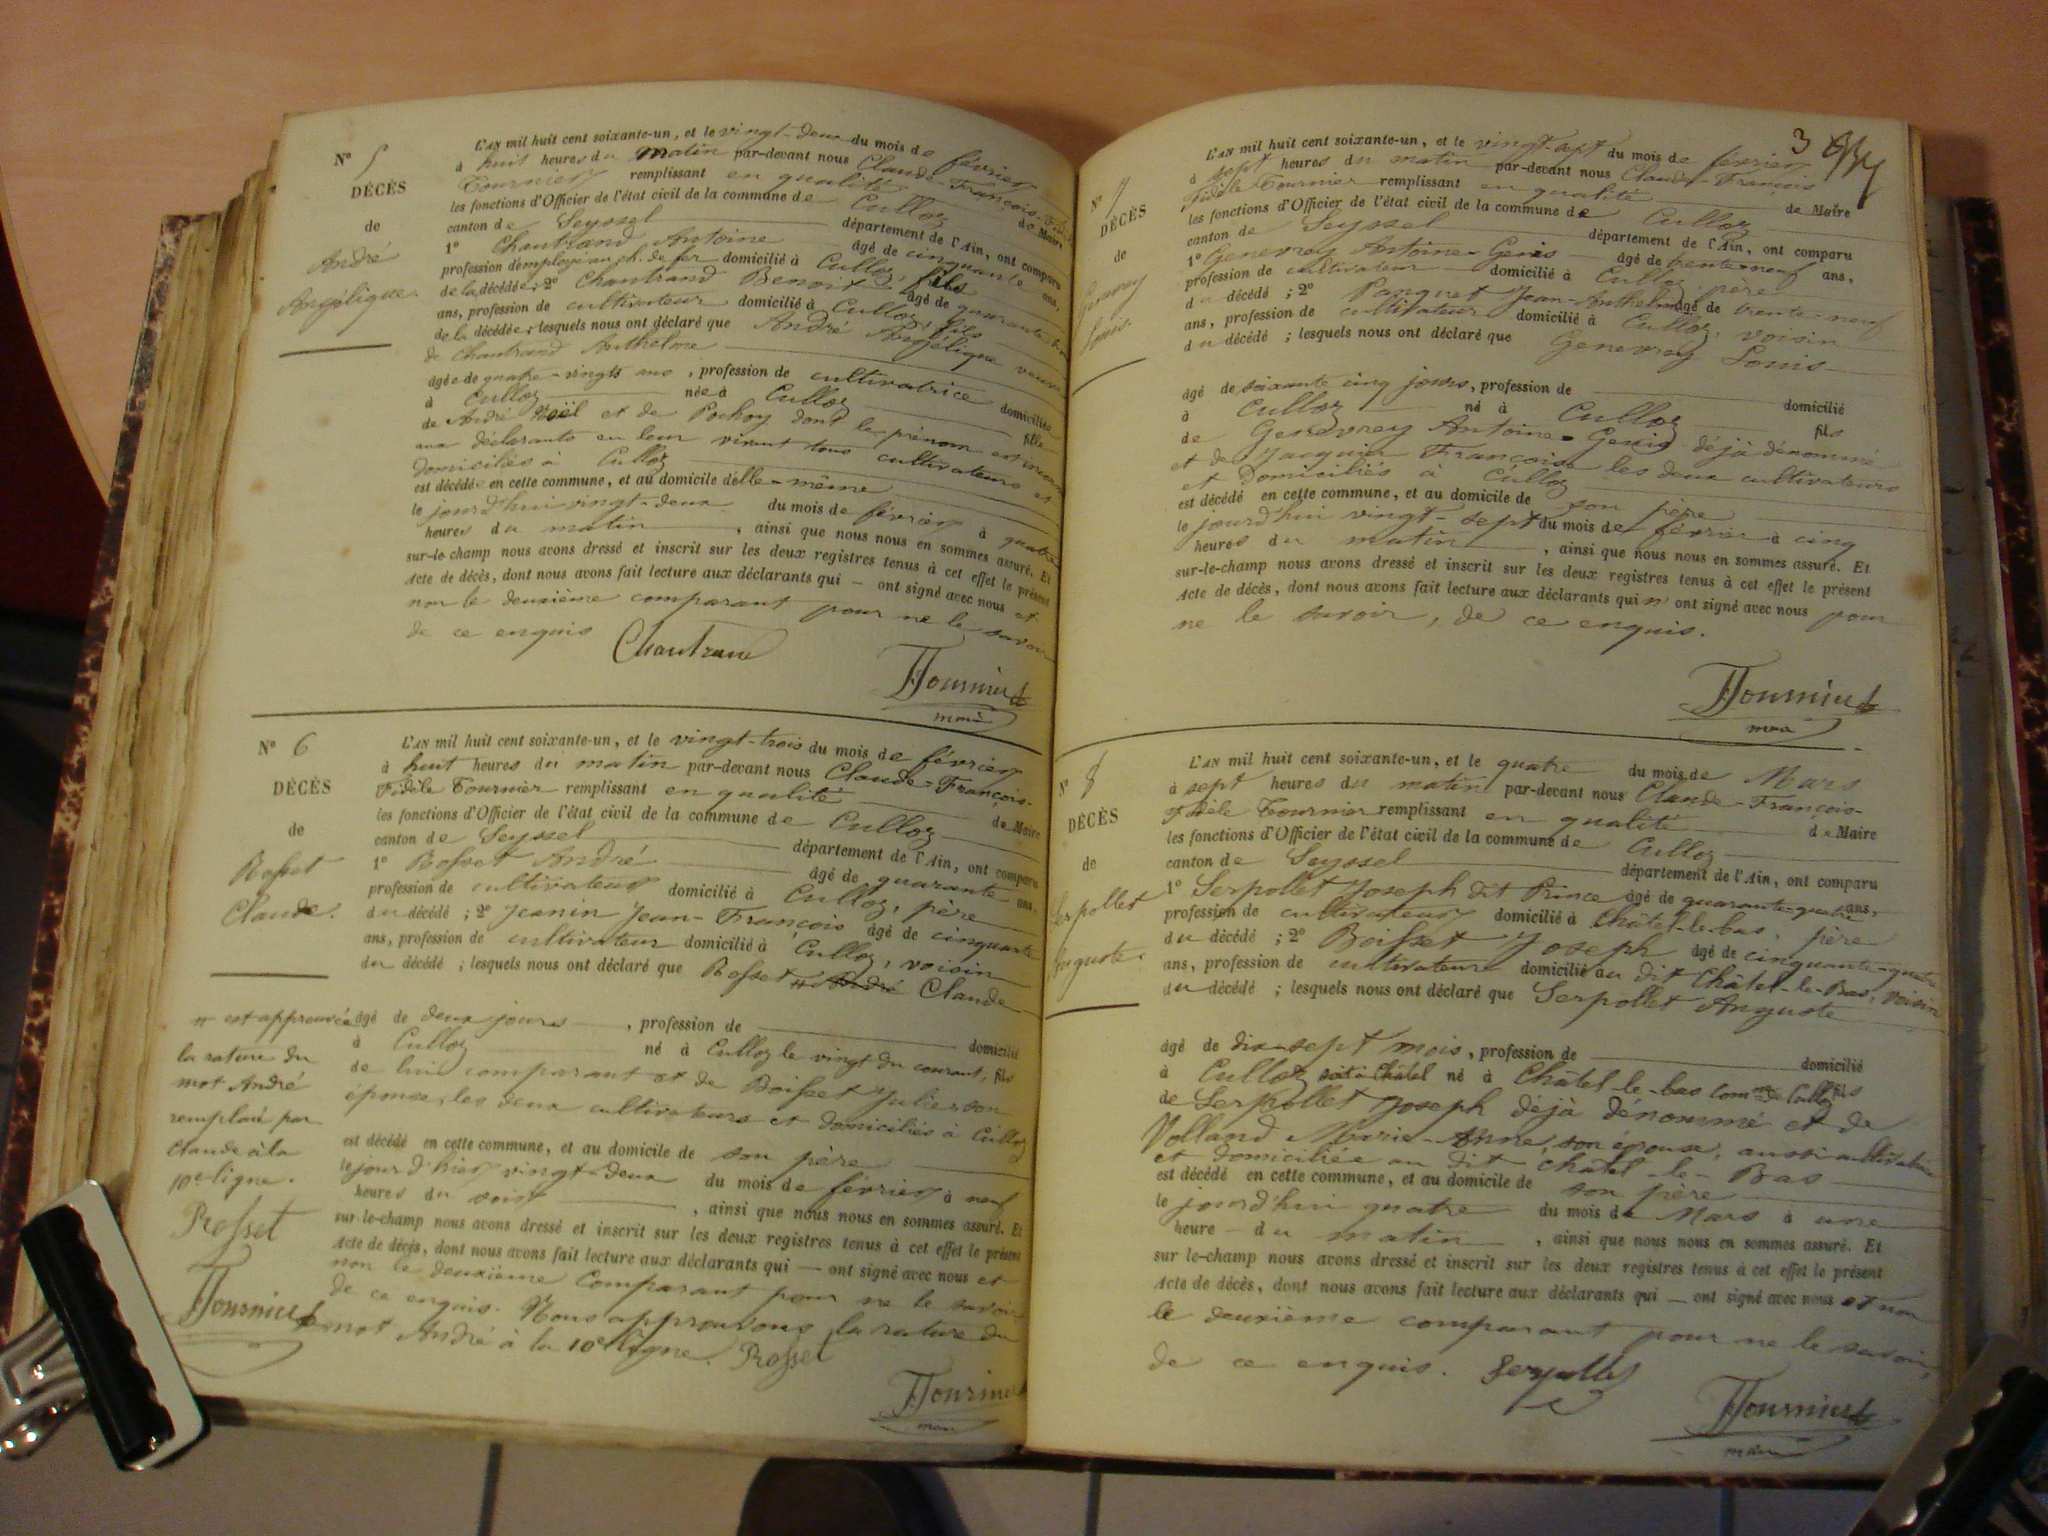 N° 5
DÉCÈS
de
André
Angélique.
L'AN mil huit cent soixante-un, et le vingt-deux du mois de février
à huit heures du matin par-devant nous Claude-François-
Tournier remplissant en qualité de Maire
les fonctions d'Officier de l'état civil de la commune de Culloz
canton de Seyssel département de l'Ain, ont comparu
1° Chantrand Antoine âgé de cinquante ans,
profession d'employé au ch. de fer domicilié à Culloz, fils
de la décédée; 2° Chantrand Benoit âgé de quarante
ans, profession de cultivateur domicilié à Culloz, fils
de la décédée; lesquels nous ont déclaré que André Angélique veuve
de Chantrand Anthelme
âgée de quatre-vingts ans, profession de cultivatrice domiciliée
à Culloz née à Culloz fille
de André Noël et de Pochoy dont le prénom est inconnu
aux déclarants en leur vivant tous cultivateurs et
domiciliés à Culloz
est décédée en cette commune, et au domicile d'elle-même
le jourd'hui vingt-deux du mois de février à quatre
heures du matin, ainsi que nous nous en sommes assuré. Et
sur-le-champ nous avons dressé et inscrit sur les deux registres tenus à cet effet le présent
Acte de décès, dont nous avons fait lecture aux déclarants qui — ont signé avec nous et
non le deuxième comparant pour ne le savoir
de ce enquis
Chantrand
Tournier
maire
N° 6
DÉCÈS
de
Rosset
Claude.
L'AN mil huit cent soixante-un, et le vingt-trois du mois de février
à huit heures du matin par-devant nous Claude-François-
Fidèle Tournier remplissant en qualité de Maire
les fonctions d'Officier de l'état civil de la commune de Culloz
canton de Seyssel département de l'Ain, ont comparu
1° Rosset André âgé de quarante ans,
profession de cultivateur domicilié à Culloz, père
du décédé; 2° Jeanin Jean-François âgé de cinquante
ans, profession de cultivateur domicilié à Culloz, voisin
du décédé; lesquels nous ont déclaré que Rosset # André Claude
âgé de deux jours, profession de domicilié
à Culloz né à Culloz le vingt du courant, fils
de lui comparant et de Boisset Julie son
épouse, les deux cultivateurs et domiciliés à Culloz
est décédé en cette commune, et au domicile de son père
le jour d'hier vingt-deux du mois de février à neuf
heures du soir, ainsi que nous nous en sommes assuré. Et
sur-le-champ nous avons dressé et inscrit sur les deux registres tenus à cet effet le présent
Acte de décès, dont nous avons fait lecture aux déclarants qui — ont signé avec nous et
non le deuxième comparant pour ne le savoir
de ce enquis. Nous approuvons la rature du
mot André à la 10e ligne. Rosset
Tournier
maire
# est approuvée
la rature du
mot André
remplacé par
Claude à la
10e ligne.
Rosset
Tournier
3
N° 7
DÉCÈS
de
Genevray
Louis
L'AN mil huit cent soixante-un, et le vingt sept du mois de février
à sept heures du matin par-devant nous Claude-François
Fidèle Tournier remplissant en qualité de Maire
les fonctions d'Officier de l'état civil de la commune de Culloz
canton de Seyssel département de l'Ain, ont comparu
1° Genevray Antoine-Genis âgé de trente-neuf ans,
profession de cultivateur domicilié à Culloz, père
du décédé; 2° Panquet Jean-Anthelme âgé de trente-neuf
ans, profession de cultivateur domicilié à Culloz, voisin
du décédé; lesquels nous ont déclaré que Genevray Louis
âgé de soixante cinq jours, profession de domicilié
à Culloz né à Culloz fils
de Genevray Antoine-Genis déjà dénommé
et de Jacquin Françoise les deux cultivateurs
et domiciliés à Culloz
est décédé en cette commune, et au domicile de son père
le jourd'hui vingt-sept du mois de février à cinq
heures du matin, ainsi que nous nous en sommes assuré. Et
sur-le-champ nous avons dressé et inscrit sur les deux registres tenus à cet effet le présent
Acte de décès, dont nous avons fait lecture aux déclarants qui n'ont signé avec nous pour
ne le savoir, de ce enquis.
Tournier
maire
N° 8
DÉCÈS
de
Serpollet
Auguste.
L'AN mil huit cent soixante-un, et le quatre du mois de Mars
à sept heures du matin par-devant nous Claude-François-
Fidèle Tournier remplissant en qualité de Maire
les fonctions d'Officier de l'état civil de la commune de Culloz
canton de Seyssel département de l'Ain, ont comparu
1° Serpollet Joseph dit Prince âgé de quarante-quatre ans,
profession de cultivateur domicilié à Châtel-le-bas, père
du décédé; 2° Boisset Joseph âgé de cinquante-quatre
ans, profession de cultivateur domicilié au dit Châtel-le-Bas, voisin
du décédé; lesquels nous ont déclaré que Serpollet Auguste
âgé de dix-sept mois, profession de domicilié
à Culloz né à Châtel-le-bas comne de Culloz fils
de Serpollet Joseph déjà dénommé et de
Volland Marie-Anne, son épouse, aussi cultivatrice
et domiciliée au dit Châtel-le-Bas
est décédé en cette commune, et au domicile de son père
le jourd'hui quatre du mois de Mars à une
heure du matin, ainsi que nous nous en sommes assuré. Et
sur-le-champ nous avons dressé et inscrit sur les deux registres tenus à cet effet le présent
Acte de décès, dont nous avons fait lecture aux déclarants qui — ont signé avec nous et non
le deuxième comparant pour ne le savoir,
de ce enquis. Serpollet
Tournier
maire